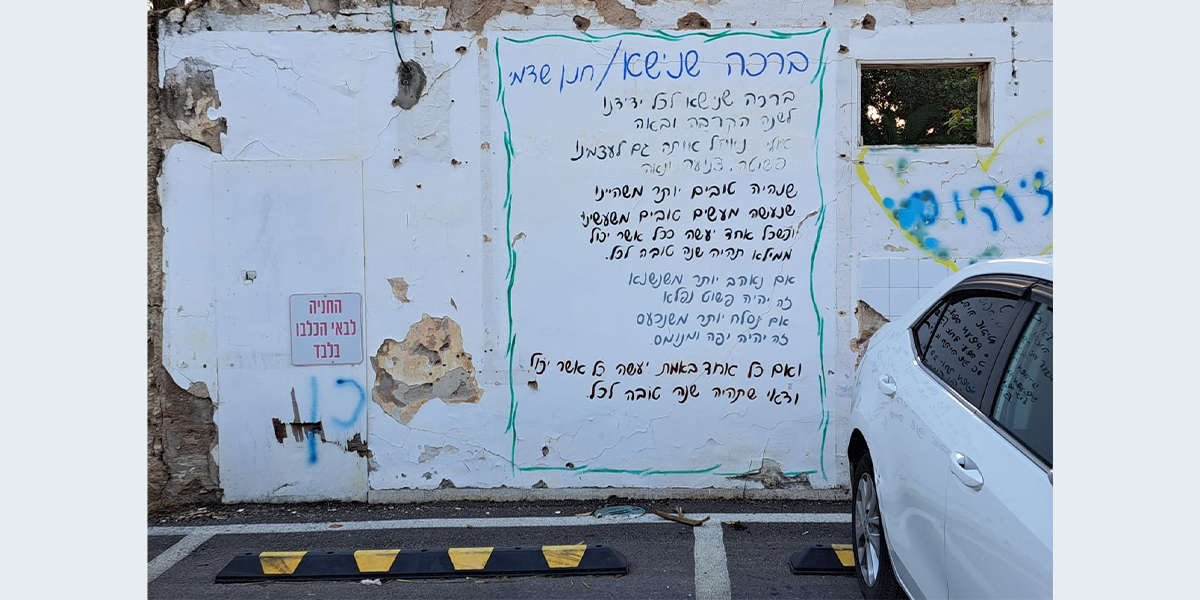 ברכה שנישא/חנן שדמי
ברכה שנישא לכל ידידנו
לשנה הקרבה ובאה
אולי נאחל אותה גם לעצמנו
פשוטה, צנועה ונאה
שנהיה טובים יותר משהיינו
שנעשה מעשים טובים משעשינו
ושכל אחד יעשה ככל אשר יכול
ממילא תהיה שנה טובה לכל.
אם נאהב יותר משנשנא
זה יהיה פשוט נפלא
אם נסלח יותר משנכעס
זה יהיה יפה ומנומס.
ואם כל אחד באמת יעשה כל אשר יכול
ודאי שתהיה שנה טובה לכל.
החניה
לבאי הכלבו
בלבד
כן